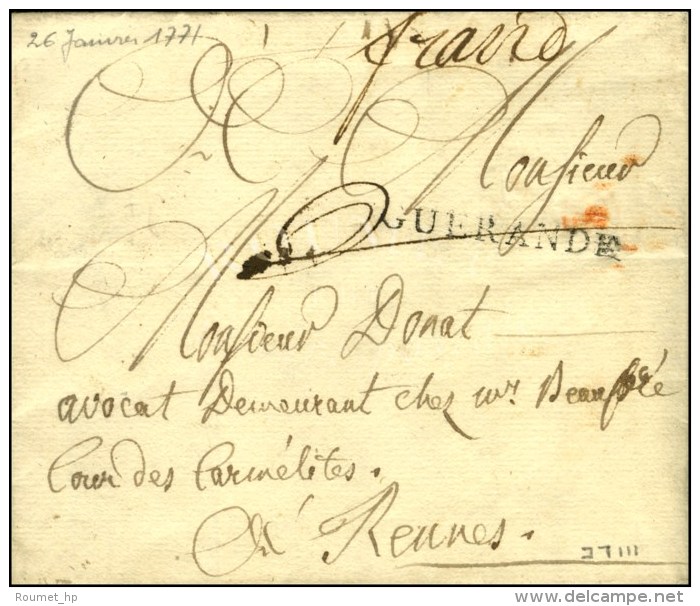 26 Janvier 1771
franc
À Monsieur
GUERANDE
Monsieur Donat
avocat Demeurant chez mr. Beaupré
Cour des Carmélites.
À Rennes.
Roumet_hp
www.delcampe.net